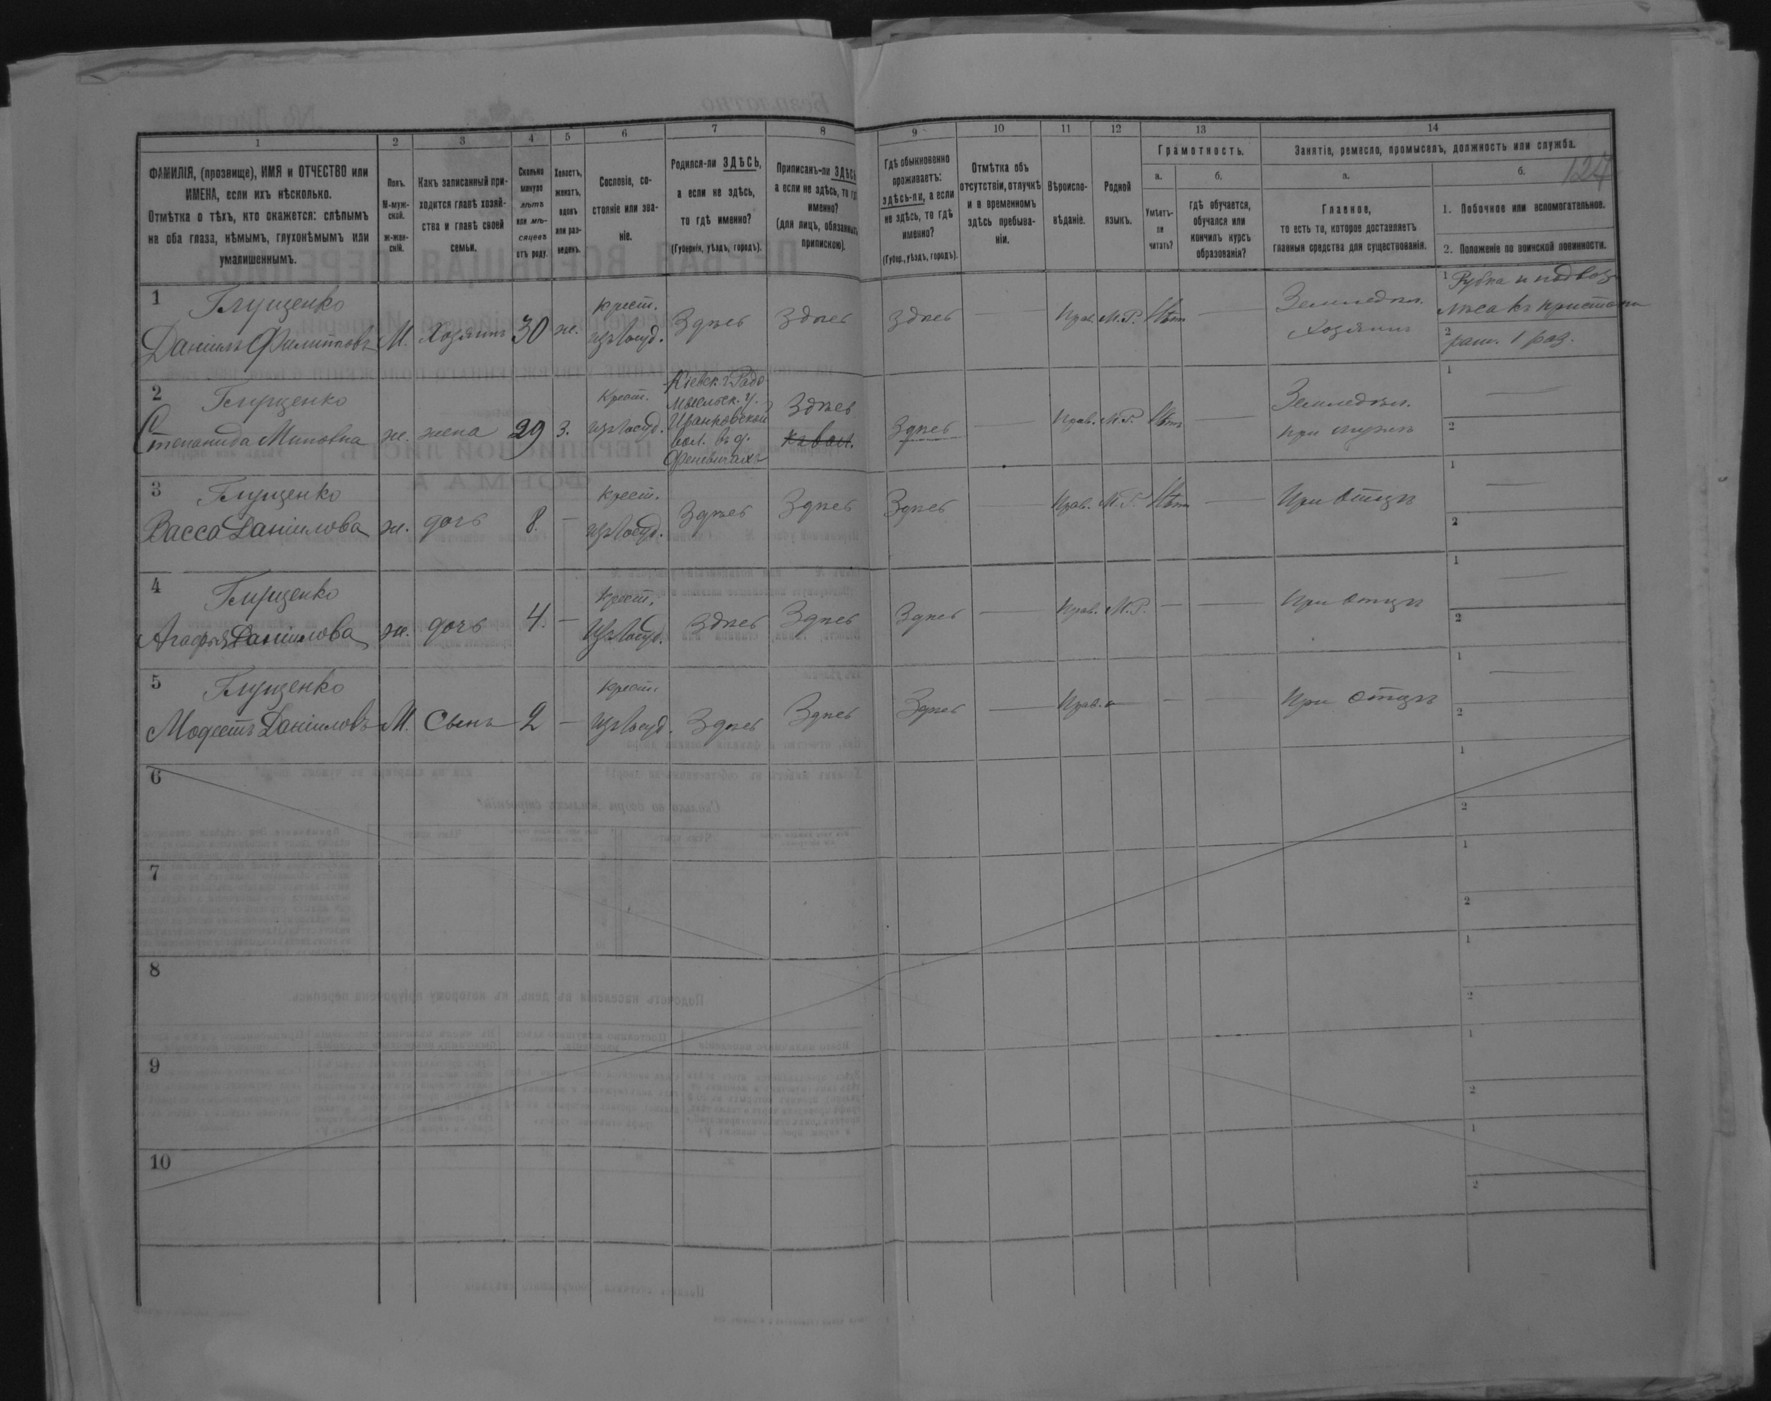 1 2 3 4 5 6 7 8 9 10 11 12 13 14
124
ФАМИЛІЯ, (прозвище), ИМЯ и ОТЧЕСТВО или
ИМЕНА, если ихъ нѣсколько.
Отмѣтка о тѣхъ, кто окажется: слѣпымъ
на оба глаза, нѣмымъ, глухонѣмымъ или
умалишеннымъ.
Полъ.
М-муж-
ской.
ж-жен-
скій.
Какъ записанный при-
ходится главѣ хозяй-
ства и главѣ своей
семьи.
Сколько
минуло
лѣтъ
или мѣ-
сяцевъ
отъ роду.
Холостъ,
женатъ,
вдовъ
или раз-
веденъ.
Сословіе, со-
стояніе или зва-
ніе.
Родился-ли ЗДѢСЬ,
а если не здѣсь,
то гдѣ именно?
(Губернія, уѣздъ, городъ).
Приписанъ-ли ЗДѢСЬ,
а если не здѣсь, то гдѣ
именно?
(для лицъ, обязанныхъ
припискою).
Гдѣ обыкновенно
проживаетъ:
здѣсь-ли, а если
не здѣсь, то гдѣ
именно?
(Губер., уѣздъ, городъ).
Отмѣтка объ
отсутствіи, отлучкѣ
и о временномъ
здѣсь пребыва-
ніи.
Вѣроиспо-
вѣданіе.
Родной
языкъ.
Грамотность.
а. б.
Умѣетъ-
ли
читать?
гдѣ обучается,
обучался или
кончилъ курсъ
образованія?
Занятіе, ремесло, промыселъ, должность или служба.
а. б.
Главное,
то есть то, которое доставляетъ
главныя средства для существованія.
1. Побочное или вспомогательное.
2. Положеніе по воинской повинности.
1 Глущенко
Даніилъ Филипповъ М. Хозяинъ 30 ж. Крест. изъ госуд. Здѣсь Здѣсь Здѣсь — Прав. М.Р. Нѣтъ — Земледѣл. хозяинъ
1 Рубка и подвоз
лѣса къ пристани
2 рат. 1 раз.
2 Глущенко
Степанида Миновна ж. жена 29 З. Крест. изъ госуд.
Кіевск. г. Радо
мысльск. у.
Иванковской
вол. въ д.
Здѣсь Здѣсь — Прав. М.Р. Нѣтъ — Земледѣл. при мужѣ 1 2
3 Глущенко
Васса Даніилова ж. дочь 8. — Крест. изъ госуд. Здѣсь Здѣсь Здѣсь — Прав. М.Р. Нѣтъ — При отцѣ 1 — 2
4 Глущенко
Агафія Даніилова ж. дочь 4. — Крест. изъ госуд. Здѣсь Здѣсь Здѣсь — Прав. М.Р. — — При отцѣ 1 — 2
5 Глущенко
Модестъ Даніиловъ М. Сынъ 2 — Крест. изъ госуд. Здѣсь Здѣсь Здѣсь — Прав. — — При отцѣ 1 — 2
6 1 2
7 1 2
8 1 2
9 1 2
10 1 2